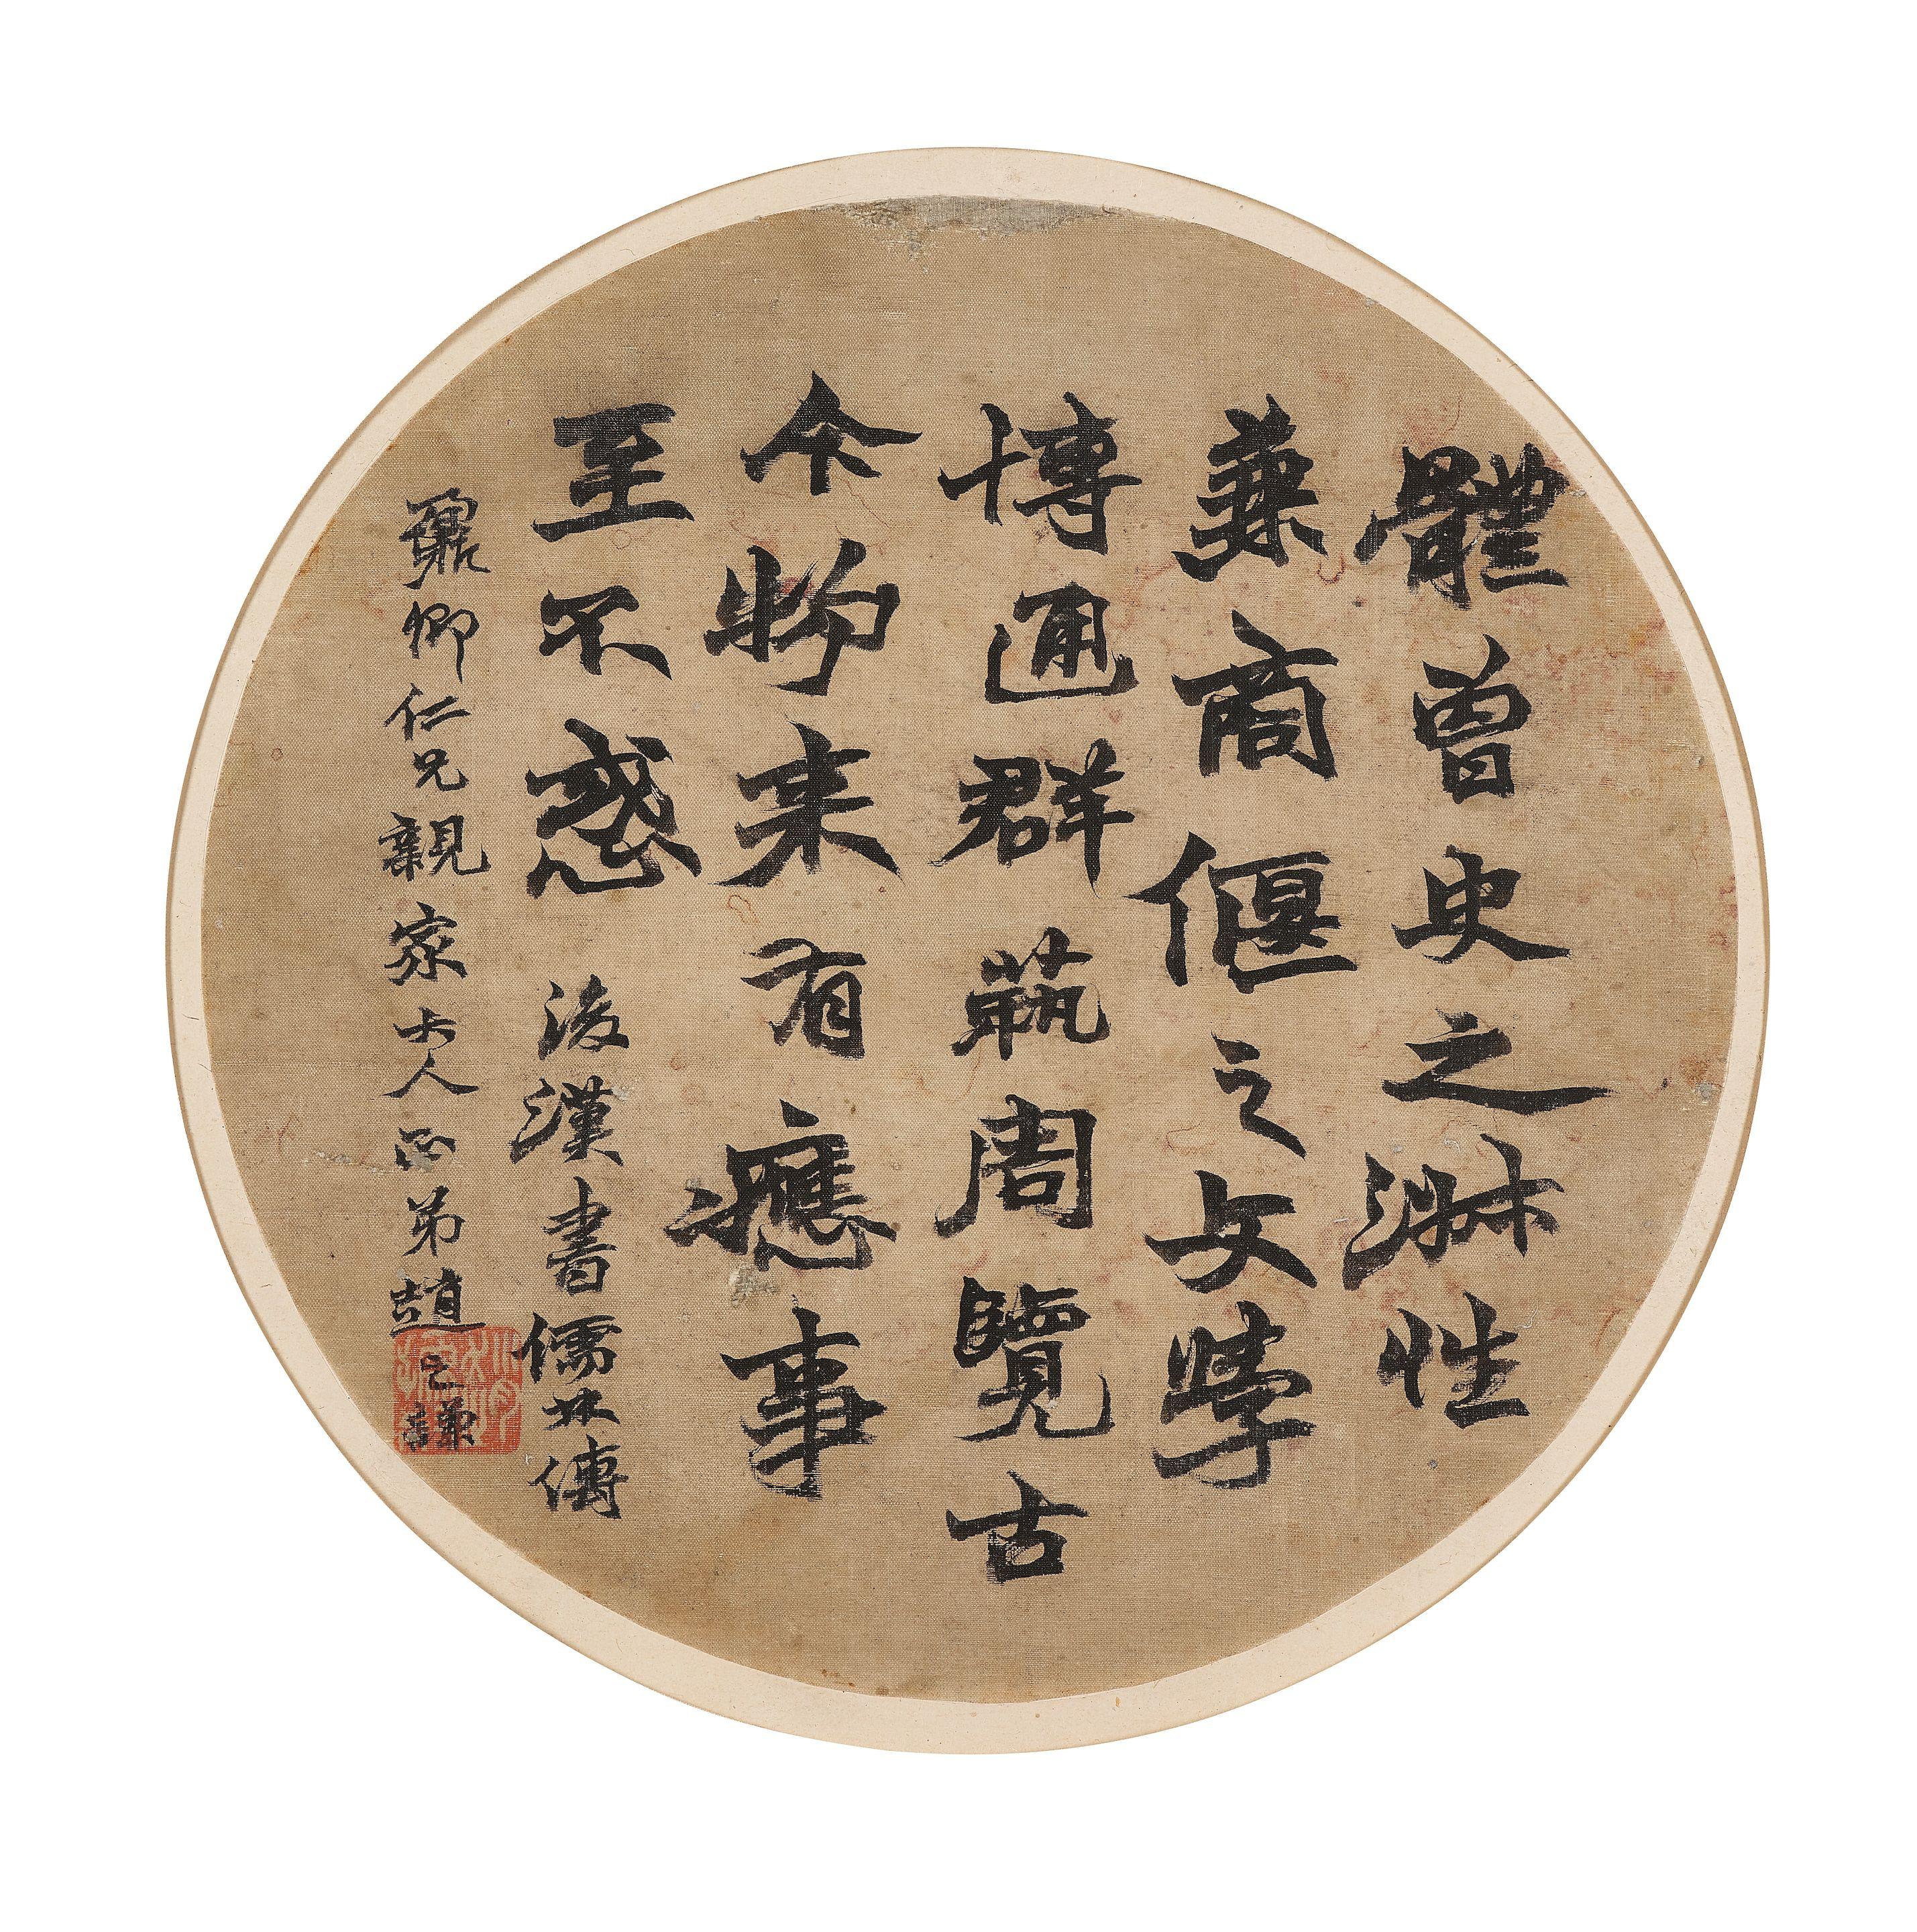 體曾史之淑性
兼商偃之文學
博通群蓺周覽古
今物来有應事
至不惑 後漢書儒林傳
鼐卿仁兄親家大人正弟趙之謙